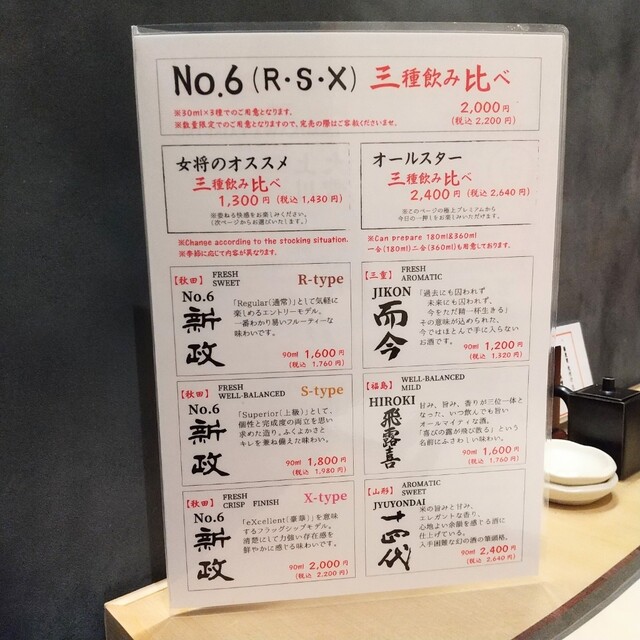 No.6 (R・S・X) 三種飲み比べ
2,000円
(税込 2,200円)
※30ml×3種でのご用意となります。
※数量限定でのご用意となりますので、完売の際はご容赦くださいませ。
女将のオススメ
三種飲み比べ
1,300円 (税込 1,430円)
※委ねる快感をお楽しみください。
(次ページからお選びいたします。)
オールスター
三種飲み比べ
2,400円 (税込 2,640円)
※このページの極上プレミアムから
今日の一押しをお楽しみいただけます。
※Change according to the stocking situation.
※季節に応じて内容が異なります。
※Can prepare 180ml&360ml
一合(180ml)二合(360ml)も用意しております。
【秋田】 FRESH
SWEET
R-type
No.6
新政
「Regular(通常)」として気軽に
楽しめるエントリーモデル。
一番わかり易いフルーティーな
味わいです。
90ml 1,600円
(税込 1,760円)
【三重】 FRESH
AROMATIC
JIKON
而今
「過去にも囚われず
未来にも囚われず、
今をただ精一杯生きる」
その意味が込められた、
今ではほとんど手に入らない
お酒です。
90ml 1,200円
(税込 1,320円)
【秋田】 FRESH
WELL-BALANCED
S-type
No.6
新政
「Superior(上級)」として、
個性と完成度の両立を思い
求めた造り、ふくよかさと
キレを兼ね備えた味わい。
90ml 1,800円
(税込 1,980円)
【福島】 WELL-BALANCED
MILD
HIROKI
飛露喜
甘み、旨み、香りが三位一体と
なった、いつ飲んでも旨い
オールマイティな酒。
「喜びの露が飛び散る」という
名前にふさわしい味わい。
90ml 1,600円
(税込 1,760円)
【秋田】 FRESH
CRISP FINISH
X-type
No.6
新政
「eXcellent(豪華)」を意味
するフラッグシップモデル。
清楚にして力強い存在感を
鮮やかに感じる味わいです。
90ml 2,000円
(税込 2,200円)
【山形】 AROMATIC
SWEET
JYUYONDAI
十四代
米の旨みと甘み、
エレガントな香り、
心地よい余韻を感じる酒に
仕上げている。
入手困難な幻の酒の筆頭格。
90ml 2,400円
(税込 2,640円)